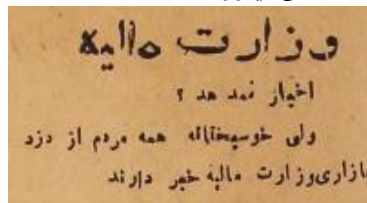 وزارت مالیه
اخبار نمد هد ؟
ولی خوسبختانه همه مردم از دزد
بازاری وزارت مالیه خبر دارند